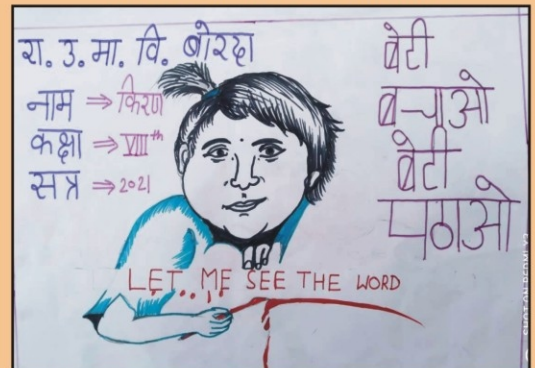 रा. उ. मा. वि. बोरदा
नाम ⇒ किरण
कक्षा ⇒ VIIIth
सत्र ⇒ 2021
बेटी
बचाओ
बेटी
पढाओ
LET.. ME SEE THE WORD